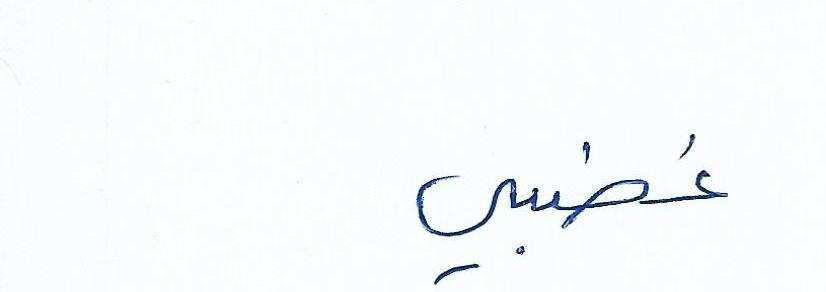 غضبي